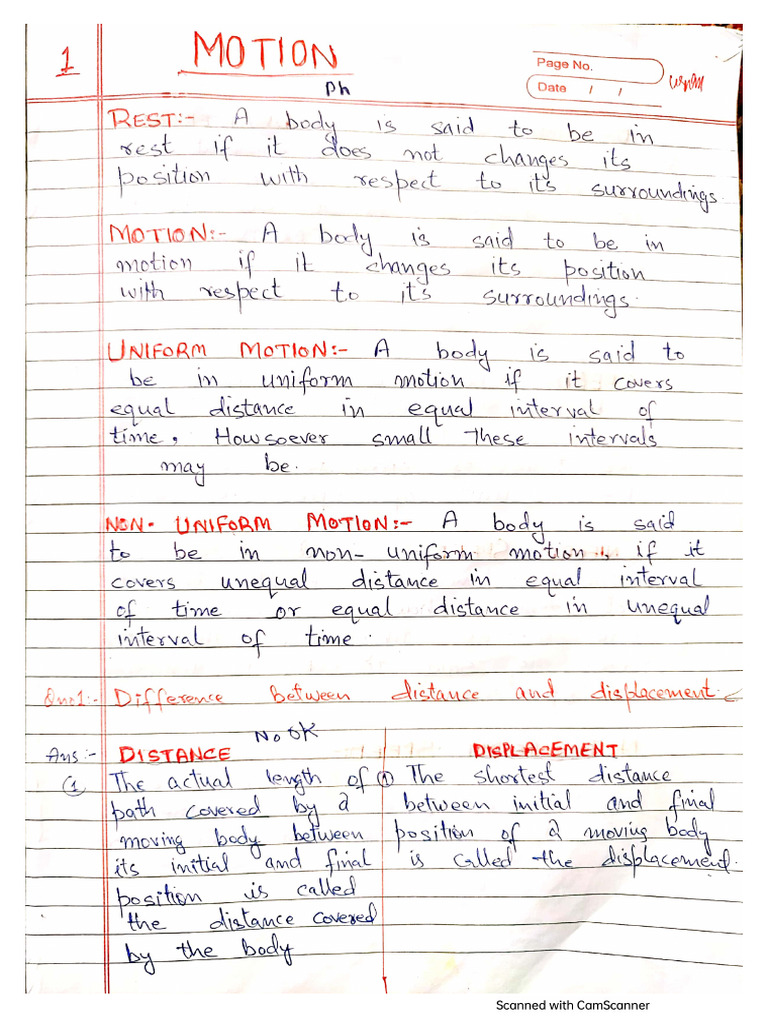 1
MOTION
Page No.
Date / /
Ph
REST:- A body is said to be in
rest if it does not changes its
position with respect to it's surroundings.
MOTION:- A body is said to be in
motion if it changes its position
with respect to it's surroundings.
UNIFORM MOTION:- A body is said to
be in uniform motion if it covers
equal distance in equal interval of
time, Howsoever small these intervals
may be.
NON- UNIFORM MOTION:- A body is said
to be in non-uniform motion, if it
covers unequal distance in equal interval
of time or equal distance in unequal
interval of time.
Qno1:- Difference between distance and displacement.
No OK
Ans:- DISTANCE
(1) The actual length of
path covered by a
moving body between
its initial and final
position is called
the distance covered
by the body
DISPLACEMENT
(1) The shortest distance
between initial and final
position of a moving body
is called the displacement.
Scanned with CamScanner